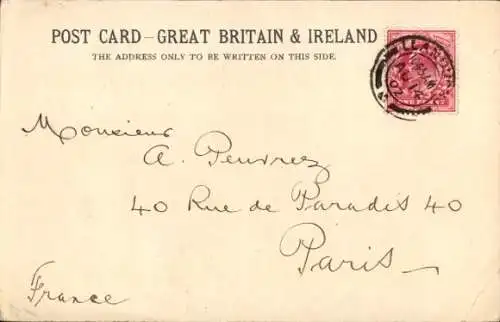 POST CARD—GREAT BRITAIN & IRELAND
THE ADDRESS ONLY TO BE WRITTEN ON THIS SIDE.
Monsieur
A. Peuvrez
40 Rue de Paradis 40
Paris
France